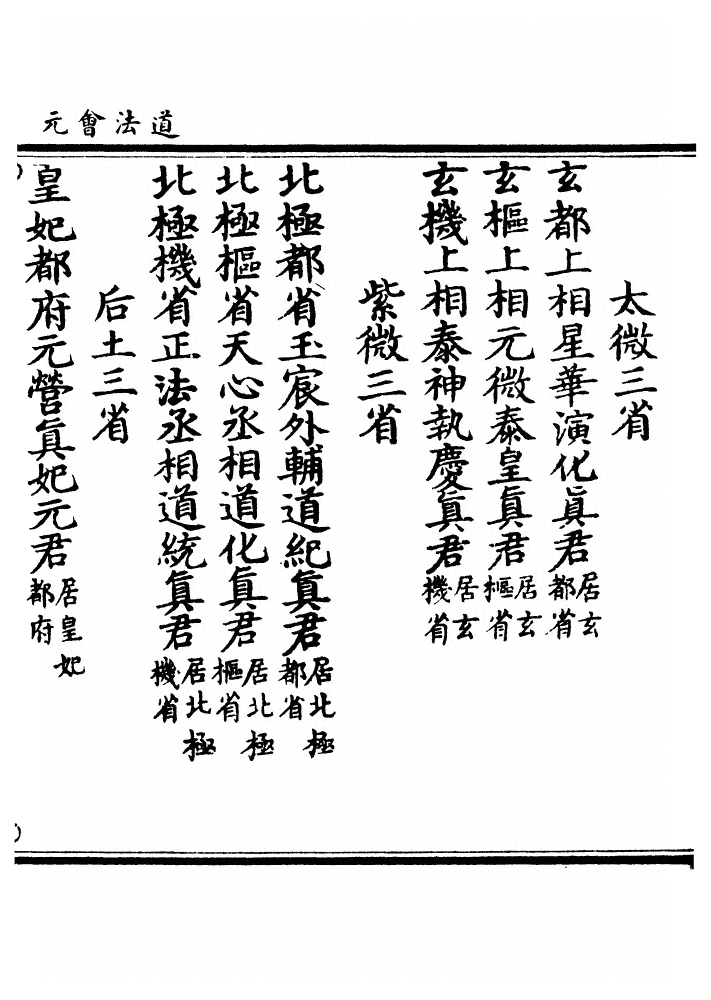 道法會元
太微三省
玄都上相星華演化眞君居玄都省
玄樞上相元微泰皇眞君居玄樞省
玄機上相泰神執慶眞君居玄機省
紫微三省
北極都省玉宸外輔道紀眞君居北極都省
北極樞省天心丞相道化眞君居北極樞省
北極機省正法丞相道統眞君居北極機省
后土三省
皇妃都府元營眞妃元君居皇妃都府